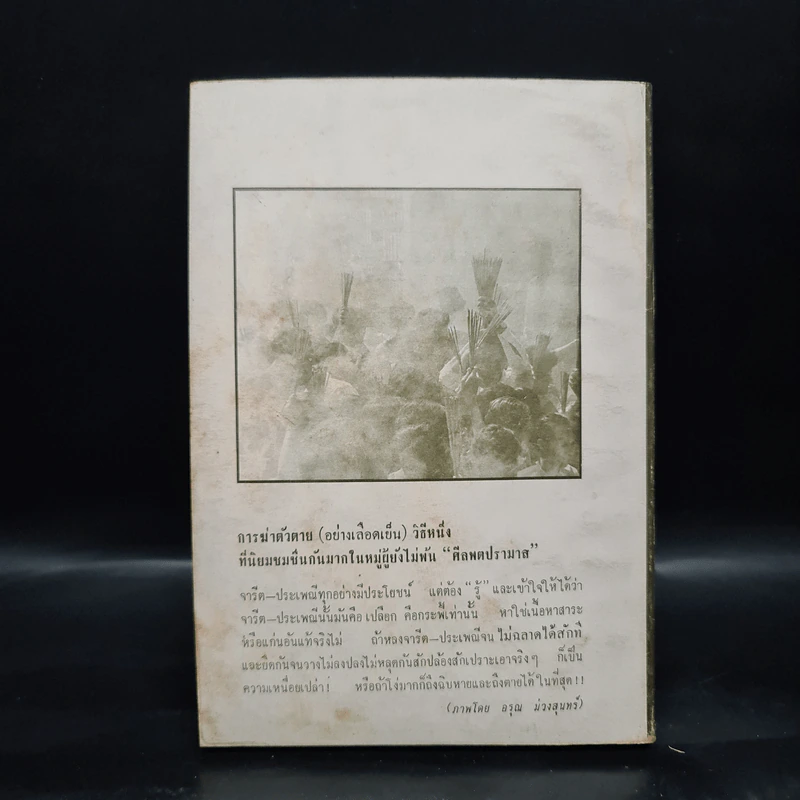 การฆ่าตัวตาย (อย่างเลือดเย็น) วิธีหนึ่ง
ที่นิยมชมชื่นกันมากในหมู่ผู้ยังไม่พ้น “ศีลพตปรามาส”
จารีต—ประเพณีทุกอย่างมีประโยชน์ แต่ต้อง “รู้” และเข้าใจให้ได้ว่า
จารีต—ประเพณีนั้นมันคือ เปลือก คือกระพี้เท่านั้น หาใช่เนื้อหาสาระ
หรือแก่นอันแท้จริงไม่ ถ้าหลงจารีต—ประเพณีจน ไม่ฉลาดได้สักที
และยึดกันจนวางไม่ลงปลงไม่หลุดกันสักปล้องสักเปราะเอาจริง ๆ ก็เป็น
ความเหนื่อยเปล่า! หรือถ้าโง่มากก็ถึงฉิบหายและถึงตายได้ ในที่สุด!!
(ภาพโดย อรุณ ม่วงสุนทร์)